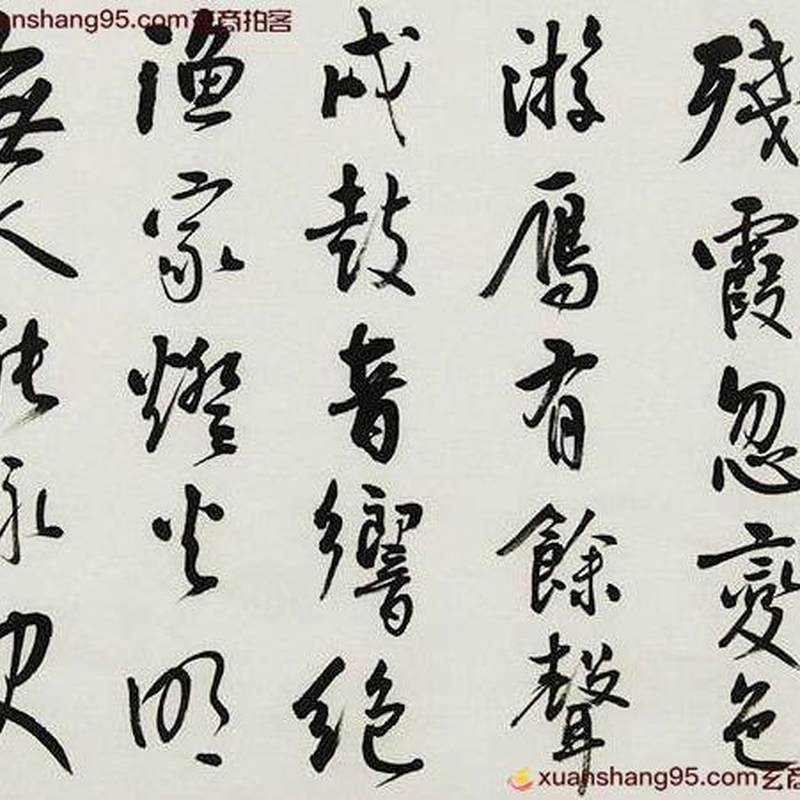 殘霞忽變色
游鴈有餘聲
戍鼓音響絕
漁家燈火明
無人能詠史
anshang95.com玄商拍客
xuanshang95.com玄商